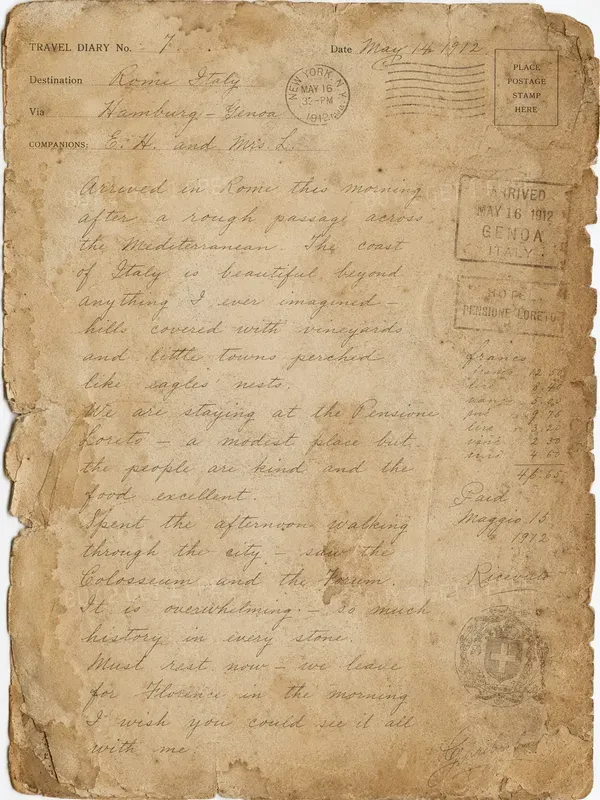 TRAVEL DIARY No. 7
Date May 14 1912
Destination Rome Italy
Via Hamburg – Genoa
COMPANIONS: E. H. and Mrs. L.
NEW YORK, N.Y.
MAY 16
1912
PLACE
POSTAGE
STAMP
HERE
Arrived in Rome this morning
after a rough passage across
the Mediterranean. The coast
of Italy is beautiful beyond
anything I ever imagined –
hills covered with vineyards
and little towns perched
like eagles' nests.
We are staying at the Pensione
Loreto – a modest place but
the people are kind and the
food excellent.
Spent the afternoon walking
through the city – saw the
Colosseum and the Forum.
It is overwhelming – so much
history in every stone.
Must rest now – we leave
for Florence in the morning
I wish you could see it all
with me.
ARRIVED
MAY 16 1912
GENOA
ITALY
PENSIONE LORETO
francs
Paid
Maggio 15
1912